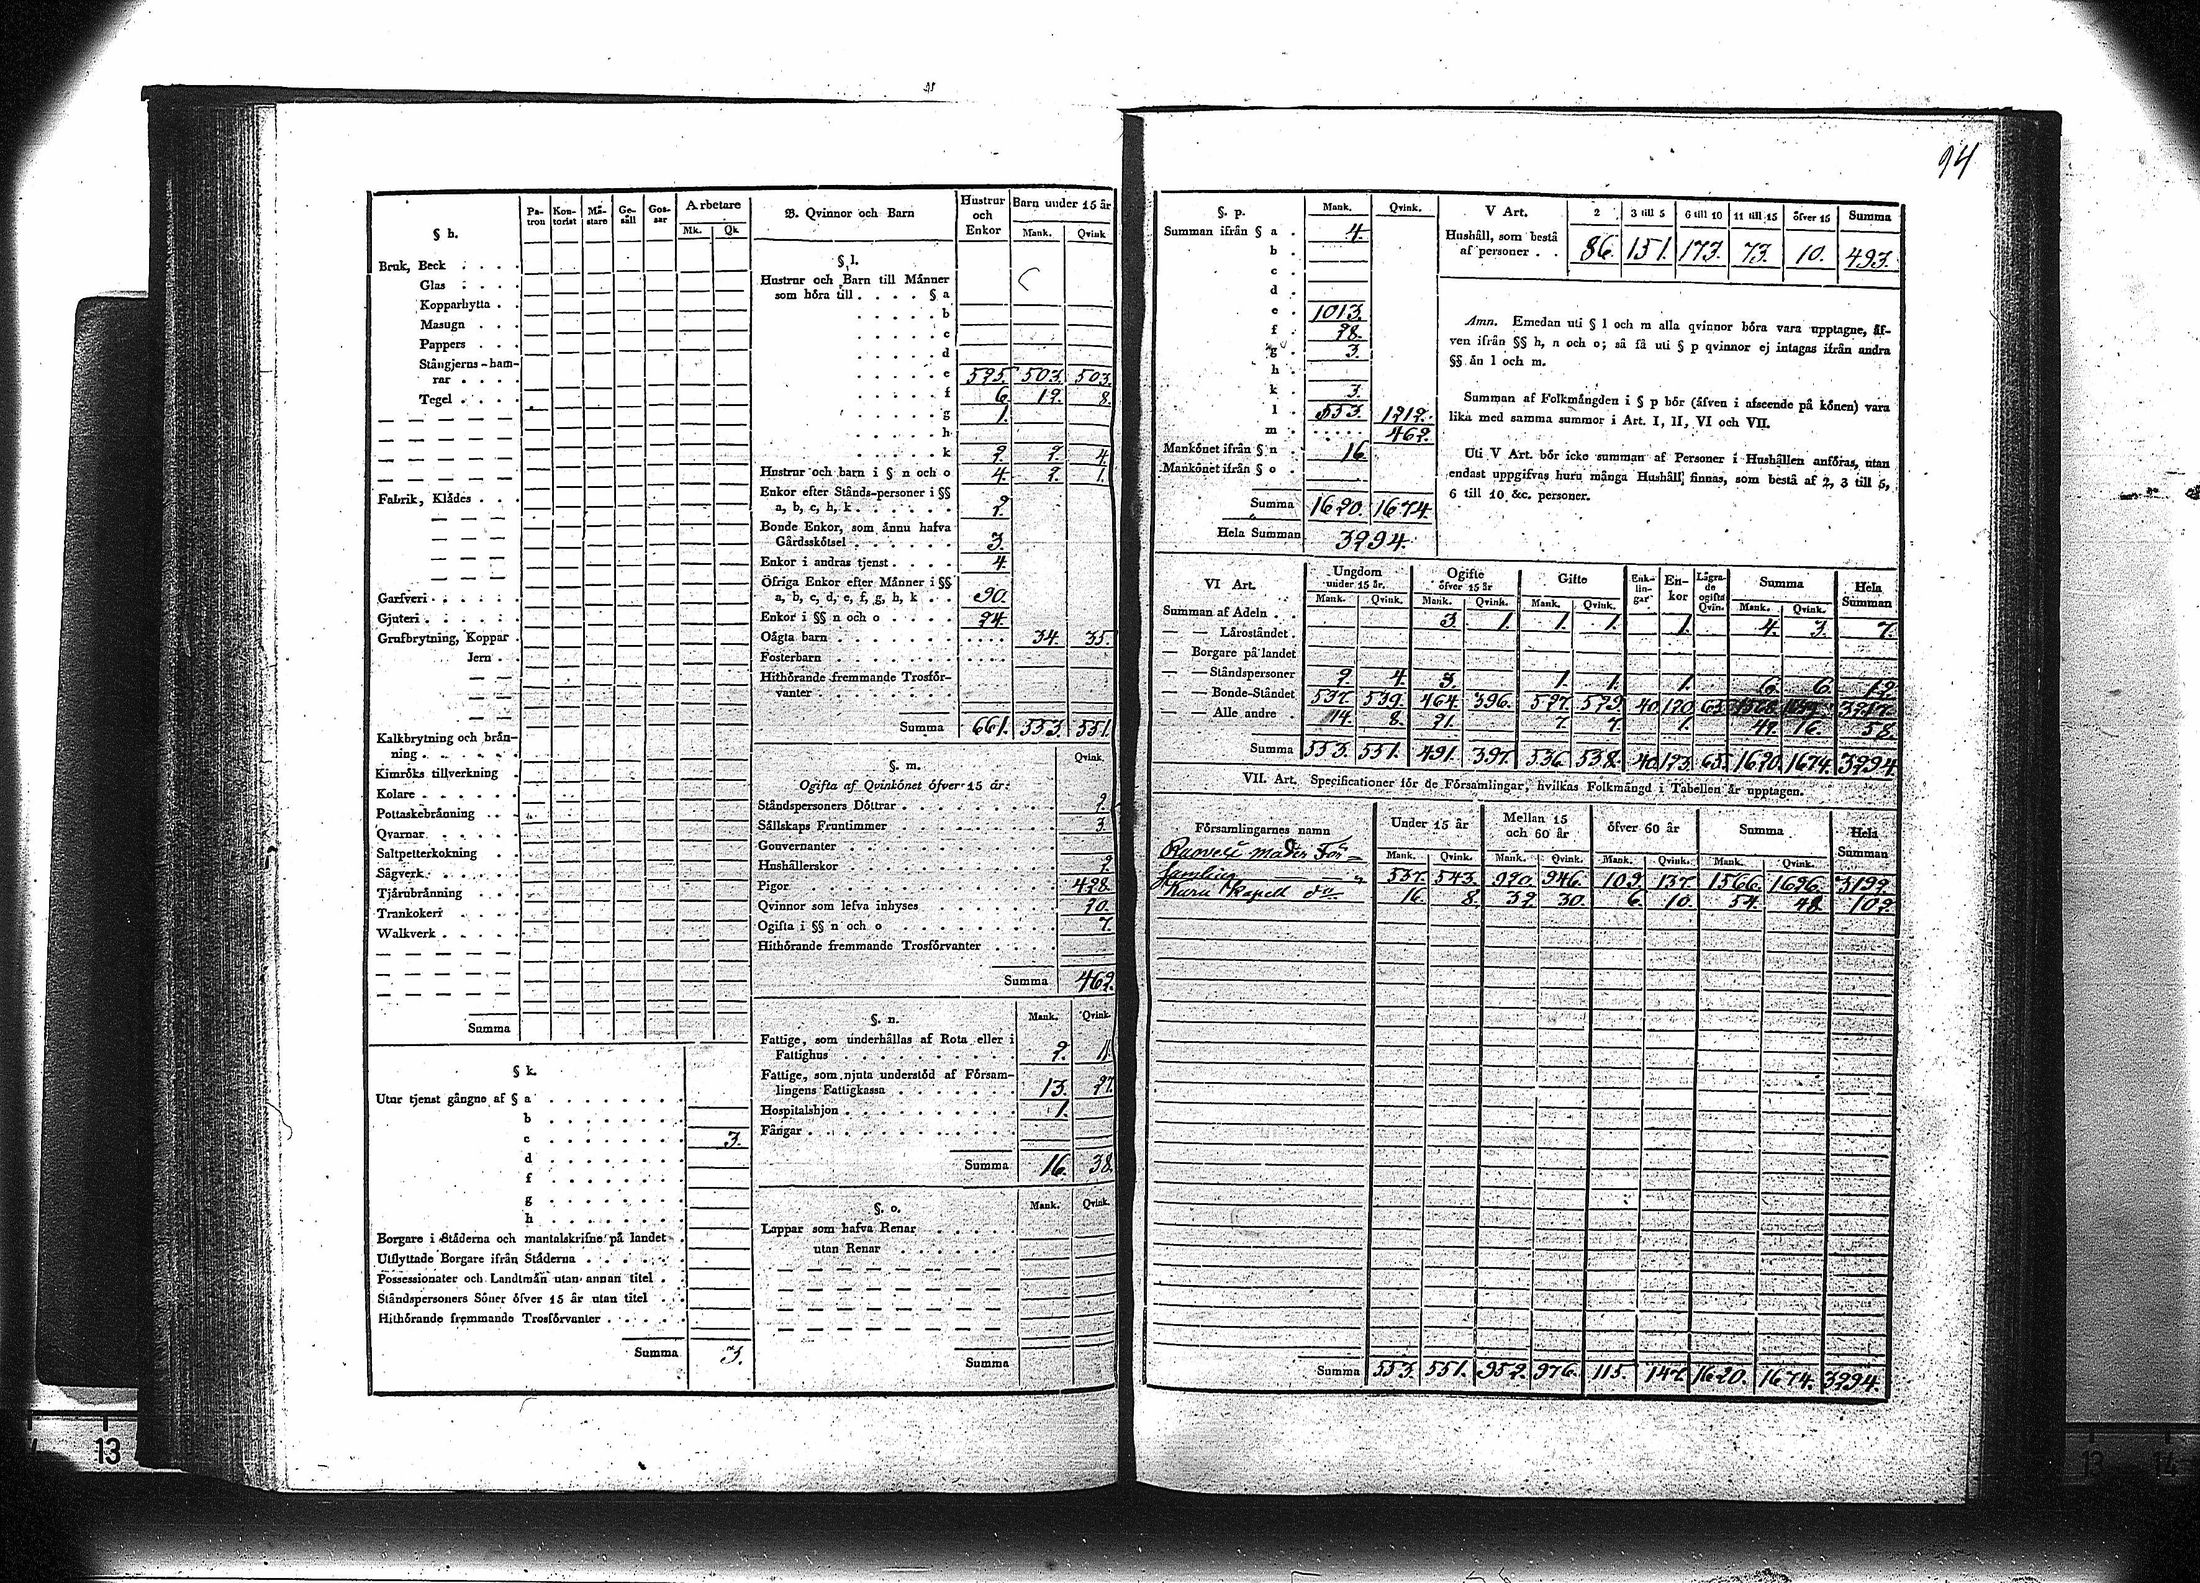 94
§ h.
Pa-tron Kon-torist Må-stare Ge-säll Gos-sar Arbetare
Mk. Qk
Bruk, Beck
Glas
Kopparhytta
Masugn
Pappers
Stångjerns-ham-
rar
Tegel
Fabrik, Klådes
Garfveri
Gjuteri
Grufbrytning, Koppar
Jern
Kalkbrytning och brån-
ning
Kimröks tillverkning
Kolare
Pottaskebrånning
Qvarnar
Saltpetterkokning
Sågverk
Tjårubrånning
Trankokeri
Walkverk
Summa
§ k.
Utur tjenst gångne af § a
b
c 3.
d
f
g
h
Borgare i Ståderna och mantalskrifne på landet
Utflyttade Borgare ifrån Ståderna
Possessionater och Landtmån utan annan titel
Ståndspersoners Söner öfver 15 år utan titel
Hithörande fremmande Trosförvanter
Summa 3.
B. Qvinnor och Barn
Hustrur och Enkor Barn under 15 år
Mank. Qvink
§ l.
Hustrur och Barn till Månner
som höra till § a
b
c
d
e 525. 503. 503.
f 6. 12. 8.
g 1.
h
k 2. 2. 4.
Hustrur och barn i § n och o 4. 2. 1.
Enkor efter Stånds-personer i §§
a, b, c, h, k 2.
Bonde Enkor, som ånnu hafva
Gårdsskötsel 3.
Enkor i andras tjenst 4.
Öfriga Enkor efter Månner i §§
a, b, c, d, e, f, g, h, k 90.
Enkor i §§ n och o 24.
Oågta barn 34. 35.
Fosterbarn
Hithörande fremmande Trosför-
vanter
Summa 661. 553. 551.
§. m. Qvink.
Ogifta af Qvinkönet öfver 15 år:
Ståndspersoners Döttrar 2.
Sållskaps Fruntimmer 3.
Gouvernanter
Hushållerskor 2.
Pigor 428.
Qvinnor som lefva inhyses 20.
Ogifta i §§ n och o 7.
Hithörande fremmande Trosförvanter
Summa 462.
§. n. Mank. Qvink.
Fattige, som underhållas af Rota eller i
Fattighus 2. 11.
Fattige, som njuta understöd af Försam-
lingens Fattigkassa 13. 27.
Hospitalshjon 1.
Fångar
Summa 16. 38.
§. o. Mank. Qvink.
Lappar som hafva Renar
utan Renar
Summa
§. p. Mank. Qvink.
Summan ifrån § a 4.
b
c
d
e 1013.
f 28.
g 3.
h
k 3.
l 553. 1212.
m 462.
Mankönet ifrån § n 16.
Mankönet ifrån § o
Summa 1620. 1674.
Hela Summan 3294.
V Art. 2 3 till 5 6 till 10 11 till 15 öfver 15 Summa
Hushåll, som bestå
af personer 86. 151. 173. 73. 10. 493.
Anm. Emedan uti § l och m alla qvinnor böra vara upptagne, åf-
ven ifrån §§ h, n och o; så få uti § p qvinnor ej intagas ifrån andra
§§ ån l och m.
Summan af Folkmångden i § p bör (åfven i afseende på könen) vara
lika med samma summor i Art. I, II, VI och VII.
Uti V Art. bör icke summan af Personer i Hushållen anföras, utan
endast uppgifvas huru många Hushåll finnas, som bestå af 2, 3 till 5,
6 till 10 &c. personer.
VI Art. Ungdom under 15 år. Ogifte öfver 15 år Gifte Enk-lin-gar En-kor Lågra-de ogifta Qvin. Summa Hela Summan
Mank. Qvink. Mank. Qvink. Mank. Qvink. Mank. Qvink.
Summan af Adeln 3. 1. 1. 1. 1. 4. 3. 7.
— — Låroståndet
— Borgare på landet
— — Ståndspersoner 2. 4. 3. 1. 1. 1. 6. 6. 12.
— — Bonde-Ståndet 537. 539. 464. 396. 527. 529. 40. 120. 65. 3217.
— — Alle andre 14. 8. 21. 7. 7. 1. 42. 16. 58.
Summa 553. 551. 491. 397. 536. 538. 40. 123. 65. 1620. 1674. 3294.
VII. Art. Specificationer för de Församlingar, hvilkas Folkmångd i Tabellen år upptagen.
Församlingarnes namn Under 15 år Mellan 15 och 60 år öfver 60 år Summa Hela Summan
Mank. Qvink. Mank. Qvink. Mank. Qvink. Mank. Qvink.
moder För=
samling 537. 543. 920. 946. 109. 137. 1566. 1626. 3192.
Kapell do 16. 8. 32. 30. 6. 10. 54. 48. 102.
Summa 553. 551. 952. 976. 115. 147. 1620. 1674. 3294.
13
13
14